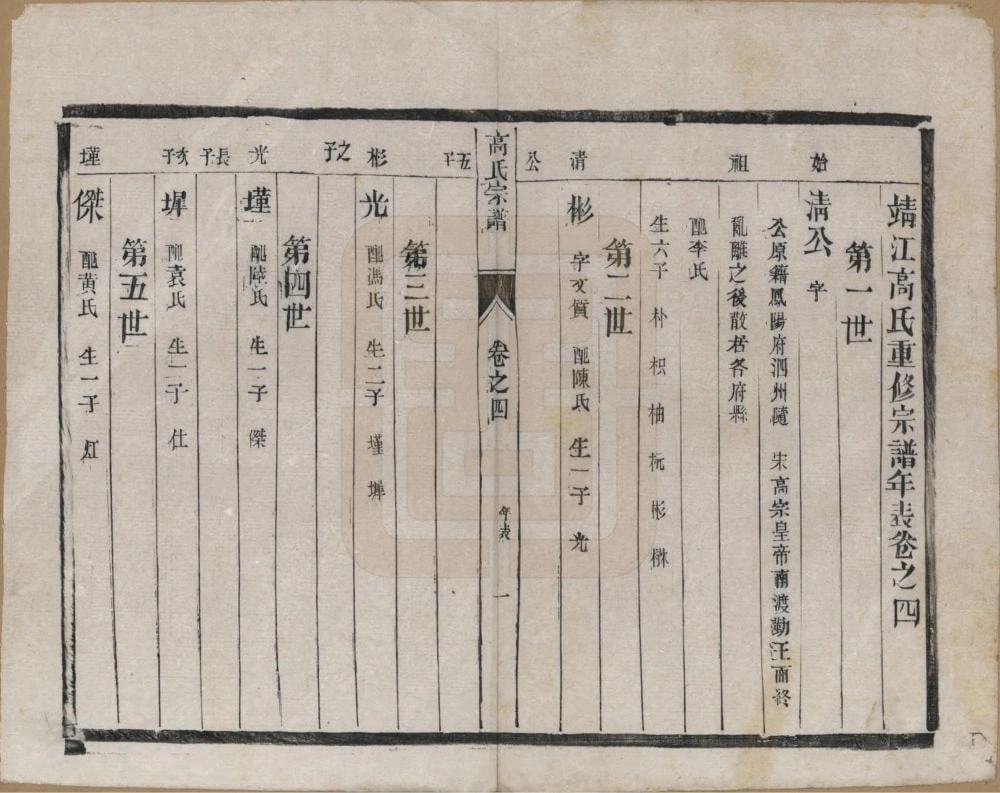 靖江高氏重修宗譜年表卷之四
第一世
始 清公 字
公原籍鳳陽府泗州隨 宋高宗皇帝南渡勤王而終
祖 亂離之後散居各府縣
配李氏
生六子 朴 枳 柚 杬 彬 楙
第二世
清 彬 字文質 配陳氏 生一子 光
公
高氏宗譜 卷之四 年表 一
五子
第三世
彬 光 配馮氏 生二子 瑾 墀
之子
第四世
光 瑾 配陸氏 生一子 傑
長子
次子 墀 配袁氏 生一子 仕
第五世
瑾 傑 配黄氏 生一子